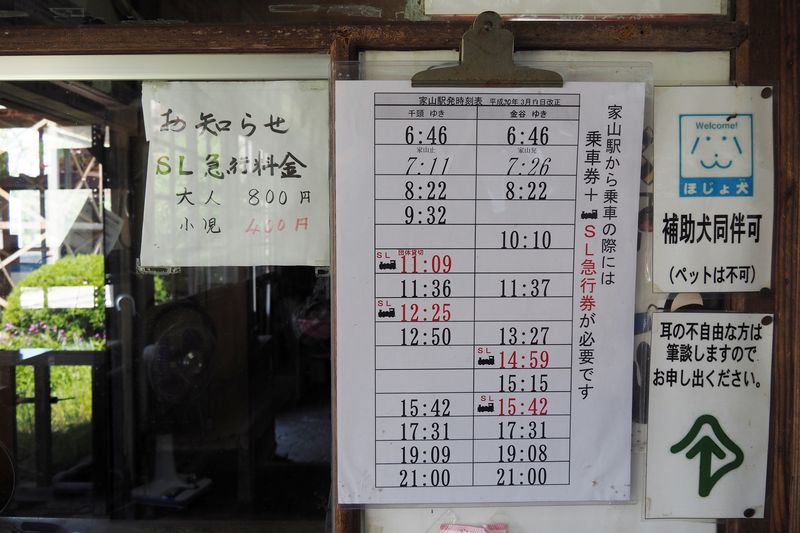 お知らせ
SL急行料金
大人 800円
小児 400円
家山駅発時刻表 平成30年3月17日改正
千頭 ゆき 金谷 ゆき
6:46 6:46
家山止 家山発
7:11 7:26
8:22 8:22
9:32
10:10
SL 団体貸切 11:09
11:36 11:37
SL 12:25
12:50 13:27
SL 14:59
15:15
15:42 SL 15:42
17:31 17:31
19:09 19:08
21:00 21:00
家山駅から乗車の際には
乗車券+SL急行券が必要です
Welcome!
ほじょ犬
補助犬同伴可
(ペットは不可)
耳の不自由な方は
筆談しますので
お申し出ください。